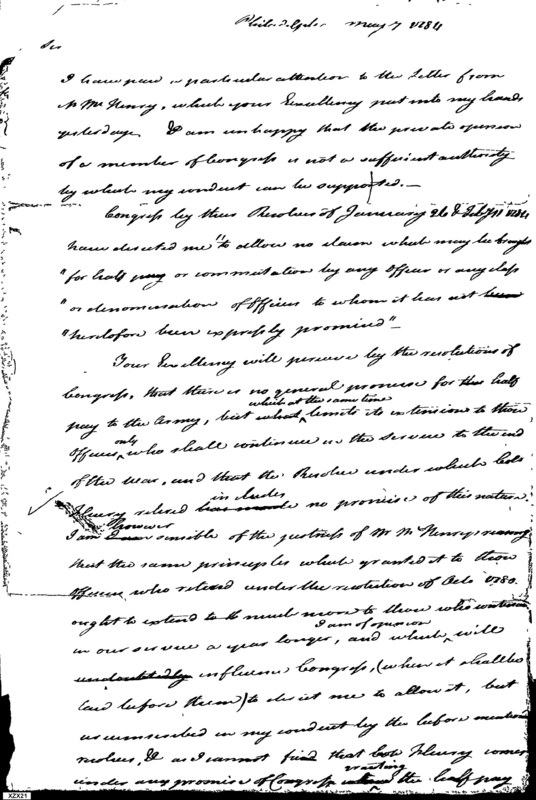 Philadelphia May 7 1784
Sir
I have paid a particular attention to the Letter from
Mr McHenry, which your Excellency put into my hands
yesterday. I am unhappy that the private opinion
of a member of Congress is not a sufficient authority
by which my conduct can be supported.—
Congress by their Resolves of January 26 & Feby 11 1784
have directed me "to allow no claim which may be brought
"for half pay or commutation by any Officer or any class
"or denomination of Officers to whom it has not been
"heretofore been expressly promised"—
Your Excellency will perceive by the resolutions of
Congress, that there is no general promise for this half
which at the same time
pay to the Army, but what limits its extension to those
only
Officers who shall continue in the service to the end
of the war, and that the Resolve under which Colo
includes
Fleury retired has made no promise of this nature.
However
I am I am sensible of the justness of Mr McHenrys reasoning
that the same principles which granted it to those
Officers who retired under the resolution of Octo 1780.
ought to extend to th much more to those who continued
I am of opinion
in our service a year longer, and which will
undoubtedly influence Congress, (when it shall be
laid before them) to direct me to allow it, but
circumscribed in my conduct by the before mentioned
resolves, & as I cannot find that Colo Fleury comes
granting
under any promise of Congress the half pay
XZX21